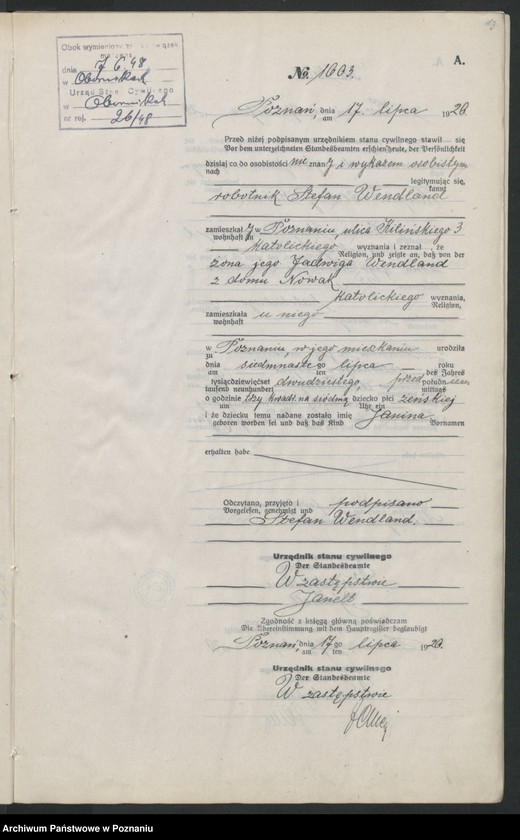 13
Obok wymieniony
dnia 7 6 48
w Obornikach
Urząd Stanu Cywilnego
w Obornikach
nr rej. 26/48
A.
No. 1603.
Poznań, dnia 17 lipca 1920.
am
Przed niżej podpisanym urzędnikiem stanu cywilnego stawił się
Vor dem unterzeichneten Standesbeamten erschien heute, der Persönlichkeit
dzisiaj co do osobistości nie znany i wykazem osobistym
nach
legitymując się,
kannt
robotnik Stefan Wendland
zamieszkały w Poznaniu, ulica Kilińskiego 3
wohnhaft in
katolickiego wyznania i zeznał, że
Religion, und zeigte an, daß von der
żona jego Jadwiga Wendland
z domu Nowak
katolickiego wyznania,
Religion,
zamieszkała u niego
wohnhaft
w Poznaniu, w jego mieszkaniu urodziła
zu
dnia siedmnastego lipca — roku
am ten des Jahres
tysiącdziewięćset dwudziestego, przed połudn
tausend neunhundert mittags
o godzinie trzy kwadr. na siódmą dziecko płci żeńskiej
um Uhr ein
i że dziecku temu nadane zostało imię Janina
geboren worden sei und daß das Kind Vornamen
erhalten habe
Odczytano, przyjęto i podpisano
Vorgelesen, genehmigt und
Stefan Wendland.
Urzędnik stanu cywilnego
Der Standesbeamte
W zastępstwie
Zgodność z księgą główną poświadczam
Die Übereinstimmung mit dem Hauptregister beglaubigt
Poznań, dnia 17go lipca 1920.
am ten
Urzędnik stanu cywilnego
Der Standesbeamte
W zastępstwie
Archiwum Państwowe w Poznaniu